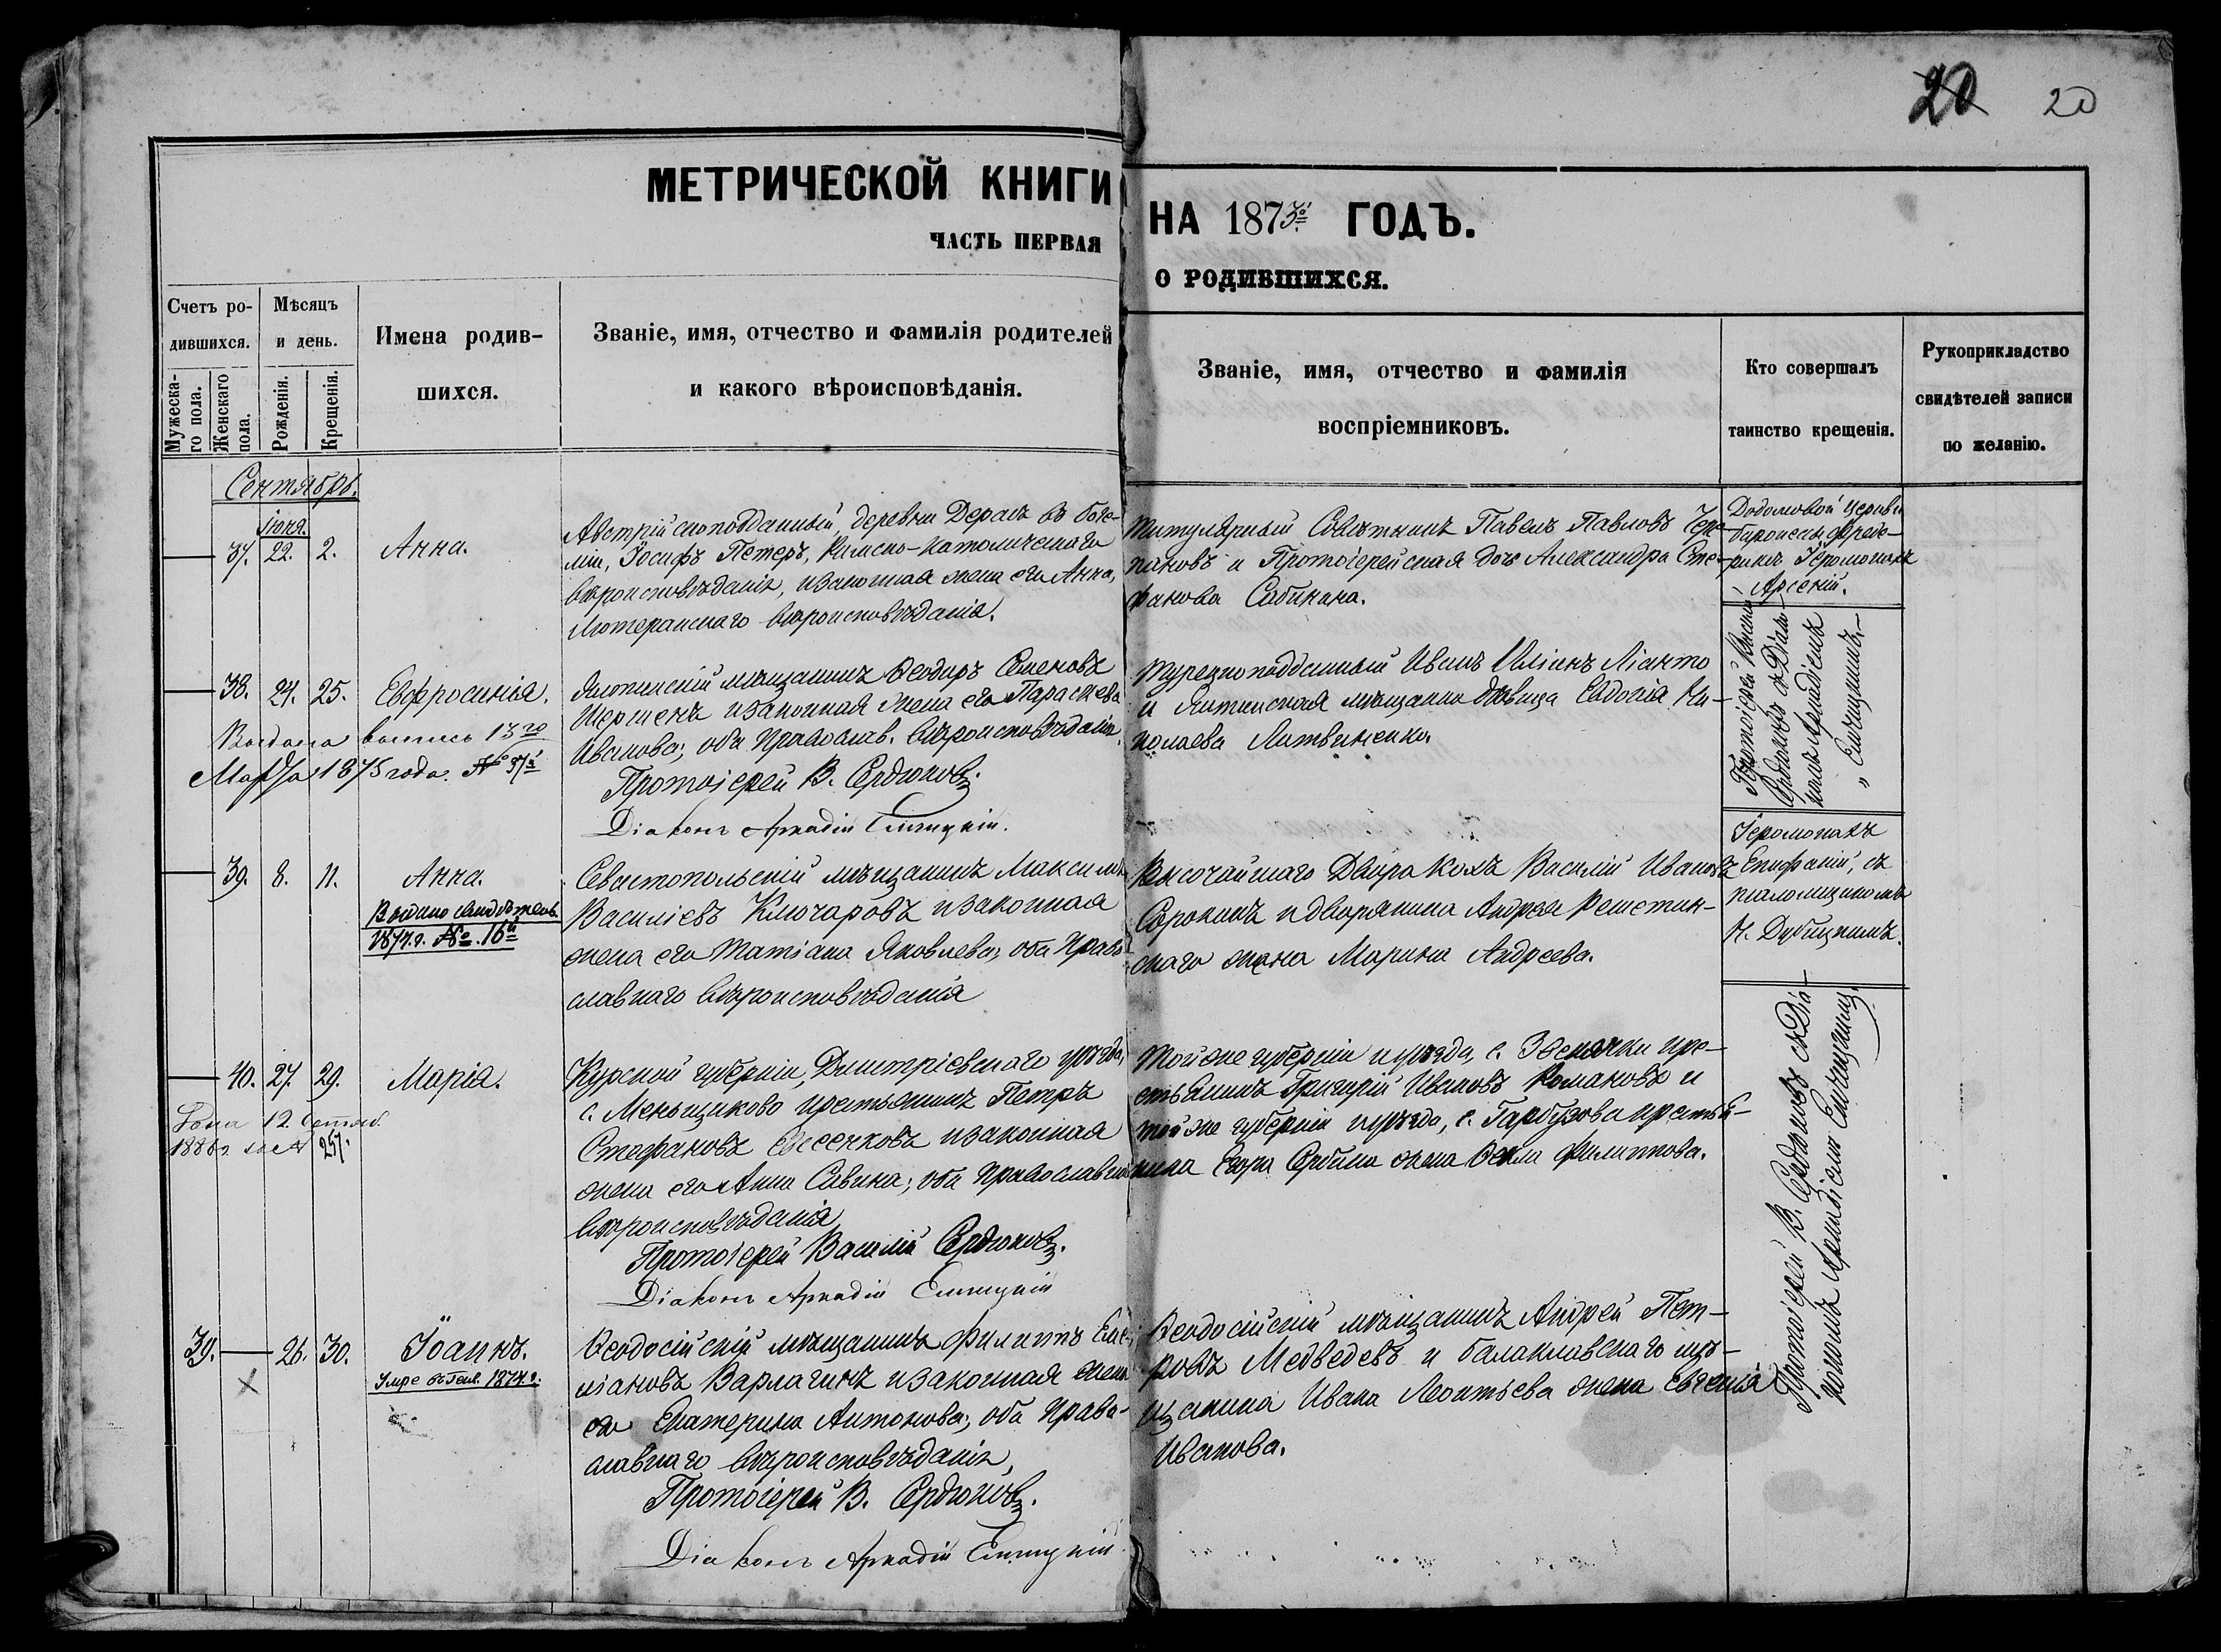 20 20
МЕТРИЧЕСКОЙ КНИГИ
НА 1873го ГОДЪ.
ЧАСТЬ ПЕРВАЯ
О РОДИВШИХСЯ.
Счетъ ро-
дившихся.
Мужеска-
го пола.
Женскаго
пола.
Мѣсяцъ
и день.
Рожденія.
Крещенія.
Имена родив-
шихся.
Званіе, имя, отчество и фамилія родителей
и какого вѣроисповѣданія.
Званіе, имя, отчество и фамилія
воспріемниковъ.
Кто совершалъ
таинство крещенія.
Рукоприкладство
свидѣтелей записи
по желанію.
Сентябрь.
Іюня.
37. 22. 2. Анна.
Австрійскоподданный, деревни въ Боге-
міи, Іосифъ Петеръ, Римско-Католическаго
вѣроисповѣданія, и законная жена его Анна,
Лютеранскаго вѣроисповѣданія.
Титулярный Совѣтникъ Павелъ Павловъ
и Протоіерейская дочь Александра Сте-
фанова Сабинина.
Іеромонахъ
Арсеній.
38. 24. 25. Евфросинія.
Выдана выпись 13го
Марта 1875 года. № 37й
Ялтинскій мѣщанинъ Ѳеодоръ Семеновъ
и законная жена его Параскева
Иванова; оба Православ. вѣроисповѣданія.
Протоіерей В. Сердюковъ.
Діаконъ Аркадій
Турецкоподданный Иванъ Ліанто
и Ялтинская мѣщанка дѣвица Евдокія Ни-
колаева Литвиненко.
39. 8. 11. Анна.
Выдано свидѣтел.
1877 г. №. 16й
Севастопольскій мѣщанинъ Максимъ
Василіевъ Ключаровъ и законная
жена его Татіана Яковлева; оба Право-
славнаго вѣроисповѣданія
Высочайшаго Двора Василій Ивановъ
Сорокинъ и дворянина Андрея Решетин-
скаго жена Марина Андреева.
Іеромонахъ
Епифаній, съ
псаломщикомъ
Н. Дубицкимъ.
40. 27. 29. Марія.
12 Сентяб.
1886 г. за № 257.
Курской губерніи, Дмитріевскаго уѣзда,
с. Меньщиково крестьянинъ Петръ
Стефановъ и законная
жена его Анна Савина; оба Православнаго
вѣроисповѣданія
Протоіерей Василій Сердюковъ.
Діаконъ Аркадій
Той же губерніи и уѣзда, с. Звенячки кре-
стьянинъ Григорій Ивановъ Романовъ и
той же губерніи и уѣзда, с. Гарбузова крестья-
нина Егора Сербина жена Ѳекла Филиппова.
39. 26. 30. Іоаннъ.
Умре 1874 г.
Ѳеодосійскій мѣщанинъ Филиппъ Еме-
ліановъ Варлагинъ и законная жена
его Екатерина Антонова; оба Право-
славнаго вѣроисповѣданія,
Протоіерей В. Сердюковъ.
Діаконъ Аркадій
Ѳеодосійскій мѣщанинъ Андрей Пет-
ровъ Медведевъ и балаклавскаго мѣ-
щанина Ивана Леонтьева жена Евгенія
Иванова.
Протоіерей В. Сердюковъ съ Діа-
кономъ Аркадіемъ